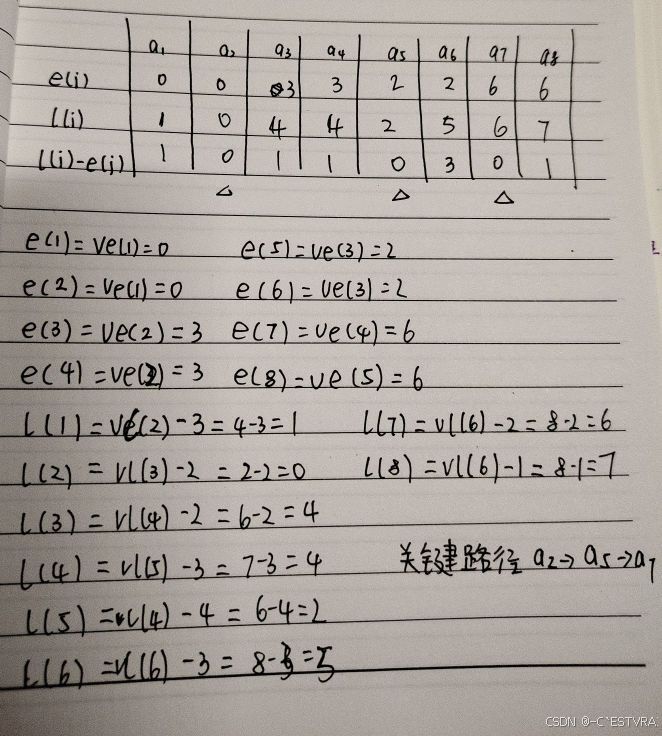 a1 a2 a3 a4 a5 a6 a7 a8
e(i) 0 0 3 3 2 2 6 6
l(i) 1 0 4 4 2 5 6 7
l(i)-e(i) 1 0 1 1 0 3 0 1
△ △ △
e(1)=ve(1)=0 e(5)=ve(3)=2
e(2)=ve(1)=0 e(6)=ve(3)=2
e(3)=ve(2)=3 e(7)=ve(4)=6
e(4)=ve(2)=3 e(8)=ve(5)=6
l(1)=vl(2)-3=4-3=1 l(7)=vl(6)-2=8-2=6
l(2)=vl(3)-2=2-2=0 l(8)=vl(6)-1=8-1=7
l(3)=vl(4)-2=6-2=4
l(4)=vl(5)-3=7-3=4 关键路径 a2→a5→a7
l(5)=vl(4)-4=6-4=2
l(6)=vl(6)-3=8-3=5
CSDN @-C`ESTVRA